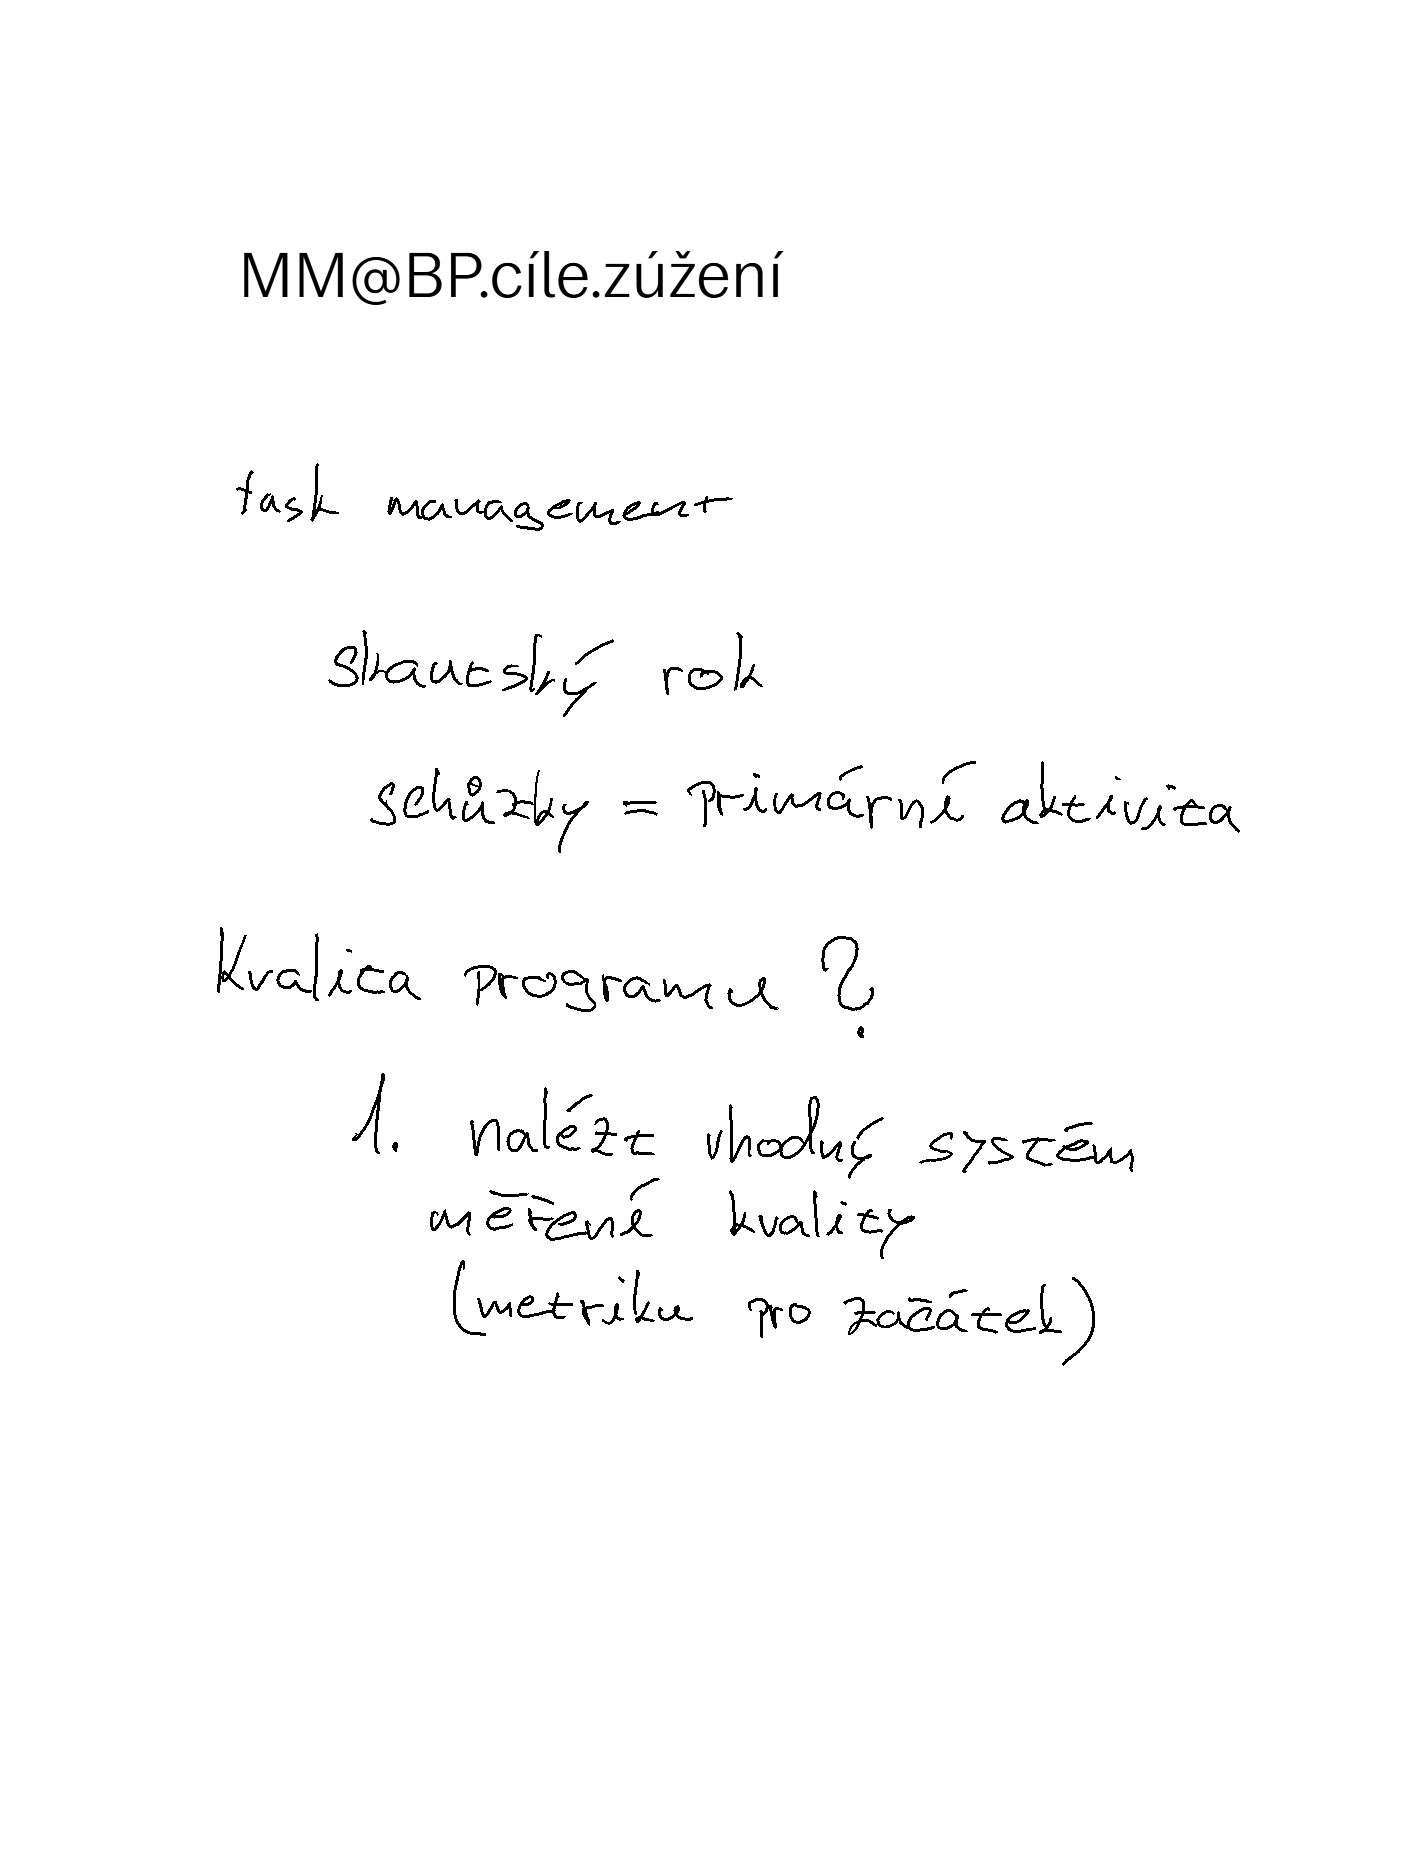 MM@BP.cíle.zúžení
task management
skautský rok
schůzky = primární aktivita
Kvalita programu ?
1. nalézt vhodný systém
měřené kvality
(metriku pro začátek)